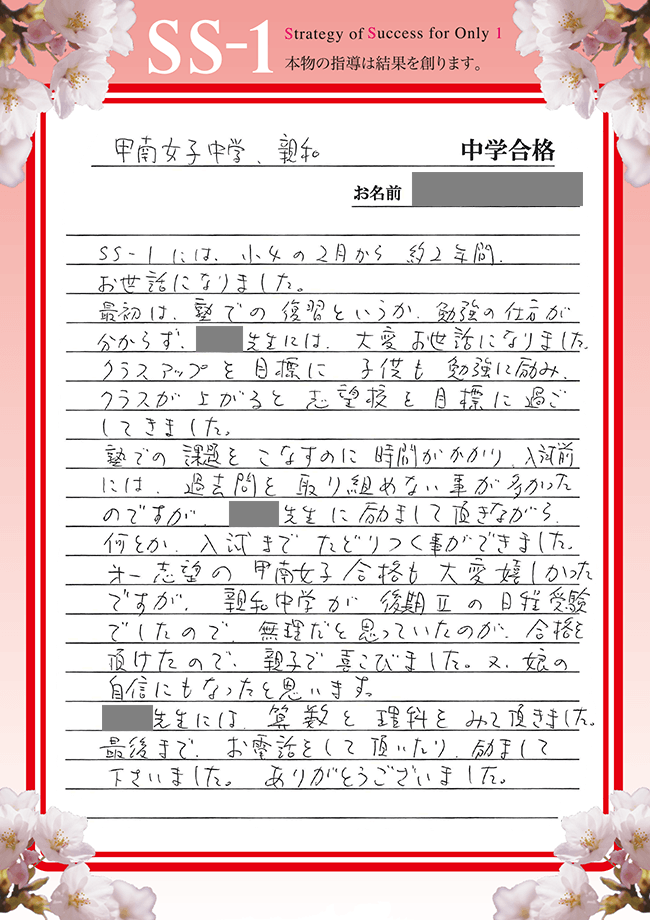 SS-1
Strategy of Success for Only 1
本物の指導は結果を創ります。
甲南女子中学、親和 中学合格
お名前
SS-1には、小4の2月から 約2年間、
お世話になりました。
最初は、塾での復習というか、勉強の仕方が
分からず、 先生には、大変お世話になりました。
クラスアップを目標に 子供も勉強に励み、
クラスが上がると志望校を目標に過ご
してきました。
塾での課題をこなすのに時間がかかり、入試前
には、過去問を取り組めない事が多かった
のですが、 先生に励まして頂きながら、
何とか、入試までたどりつく事ができました。
才一志望の甲南女子合格も大変嬉しかった
ですが、親和中学が後期Ⅱの日程受験
でしたので、無理だと思っていたのが、合格を
頂けたので、親子で喜こびました。又、娘の
自信にもなったと思います。
先生には、算数と理科をみて頂きました。
最後まで、お電話をして頂いたり、励まして
下さいました。ありがとうございました。